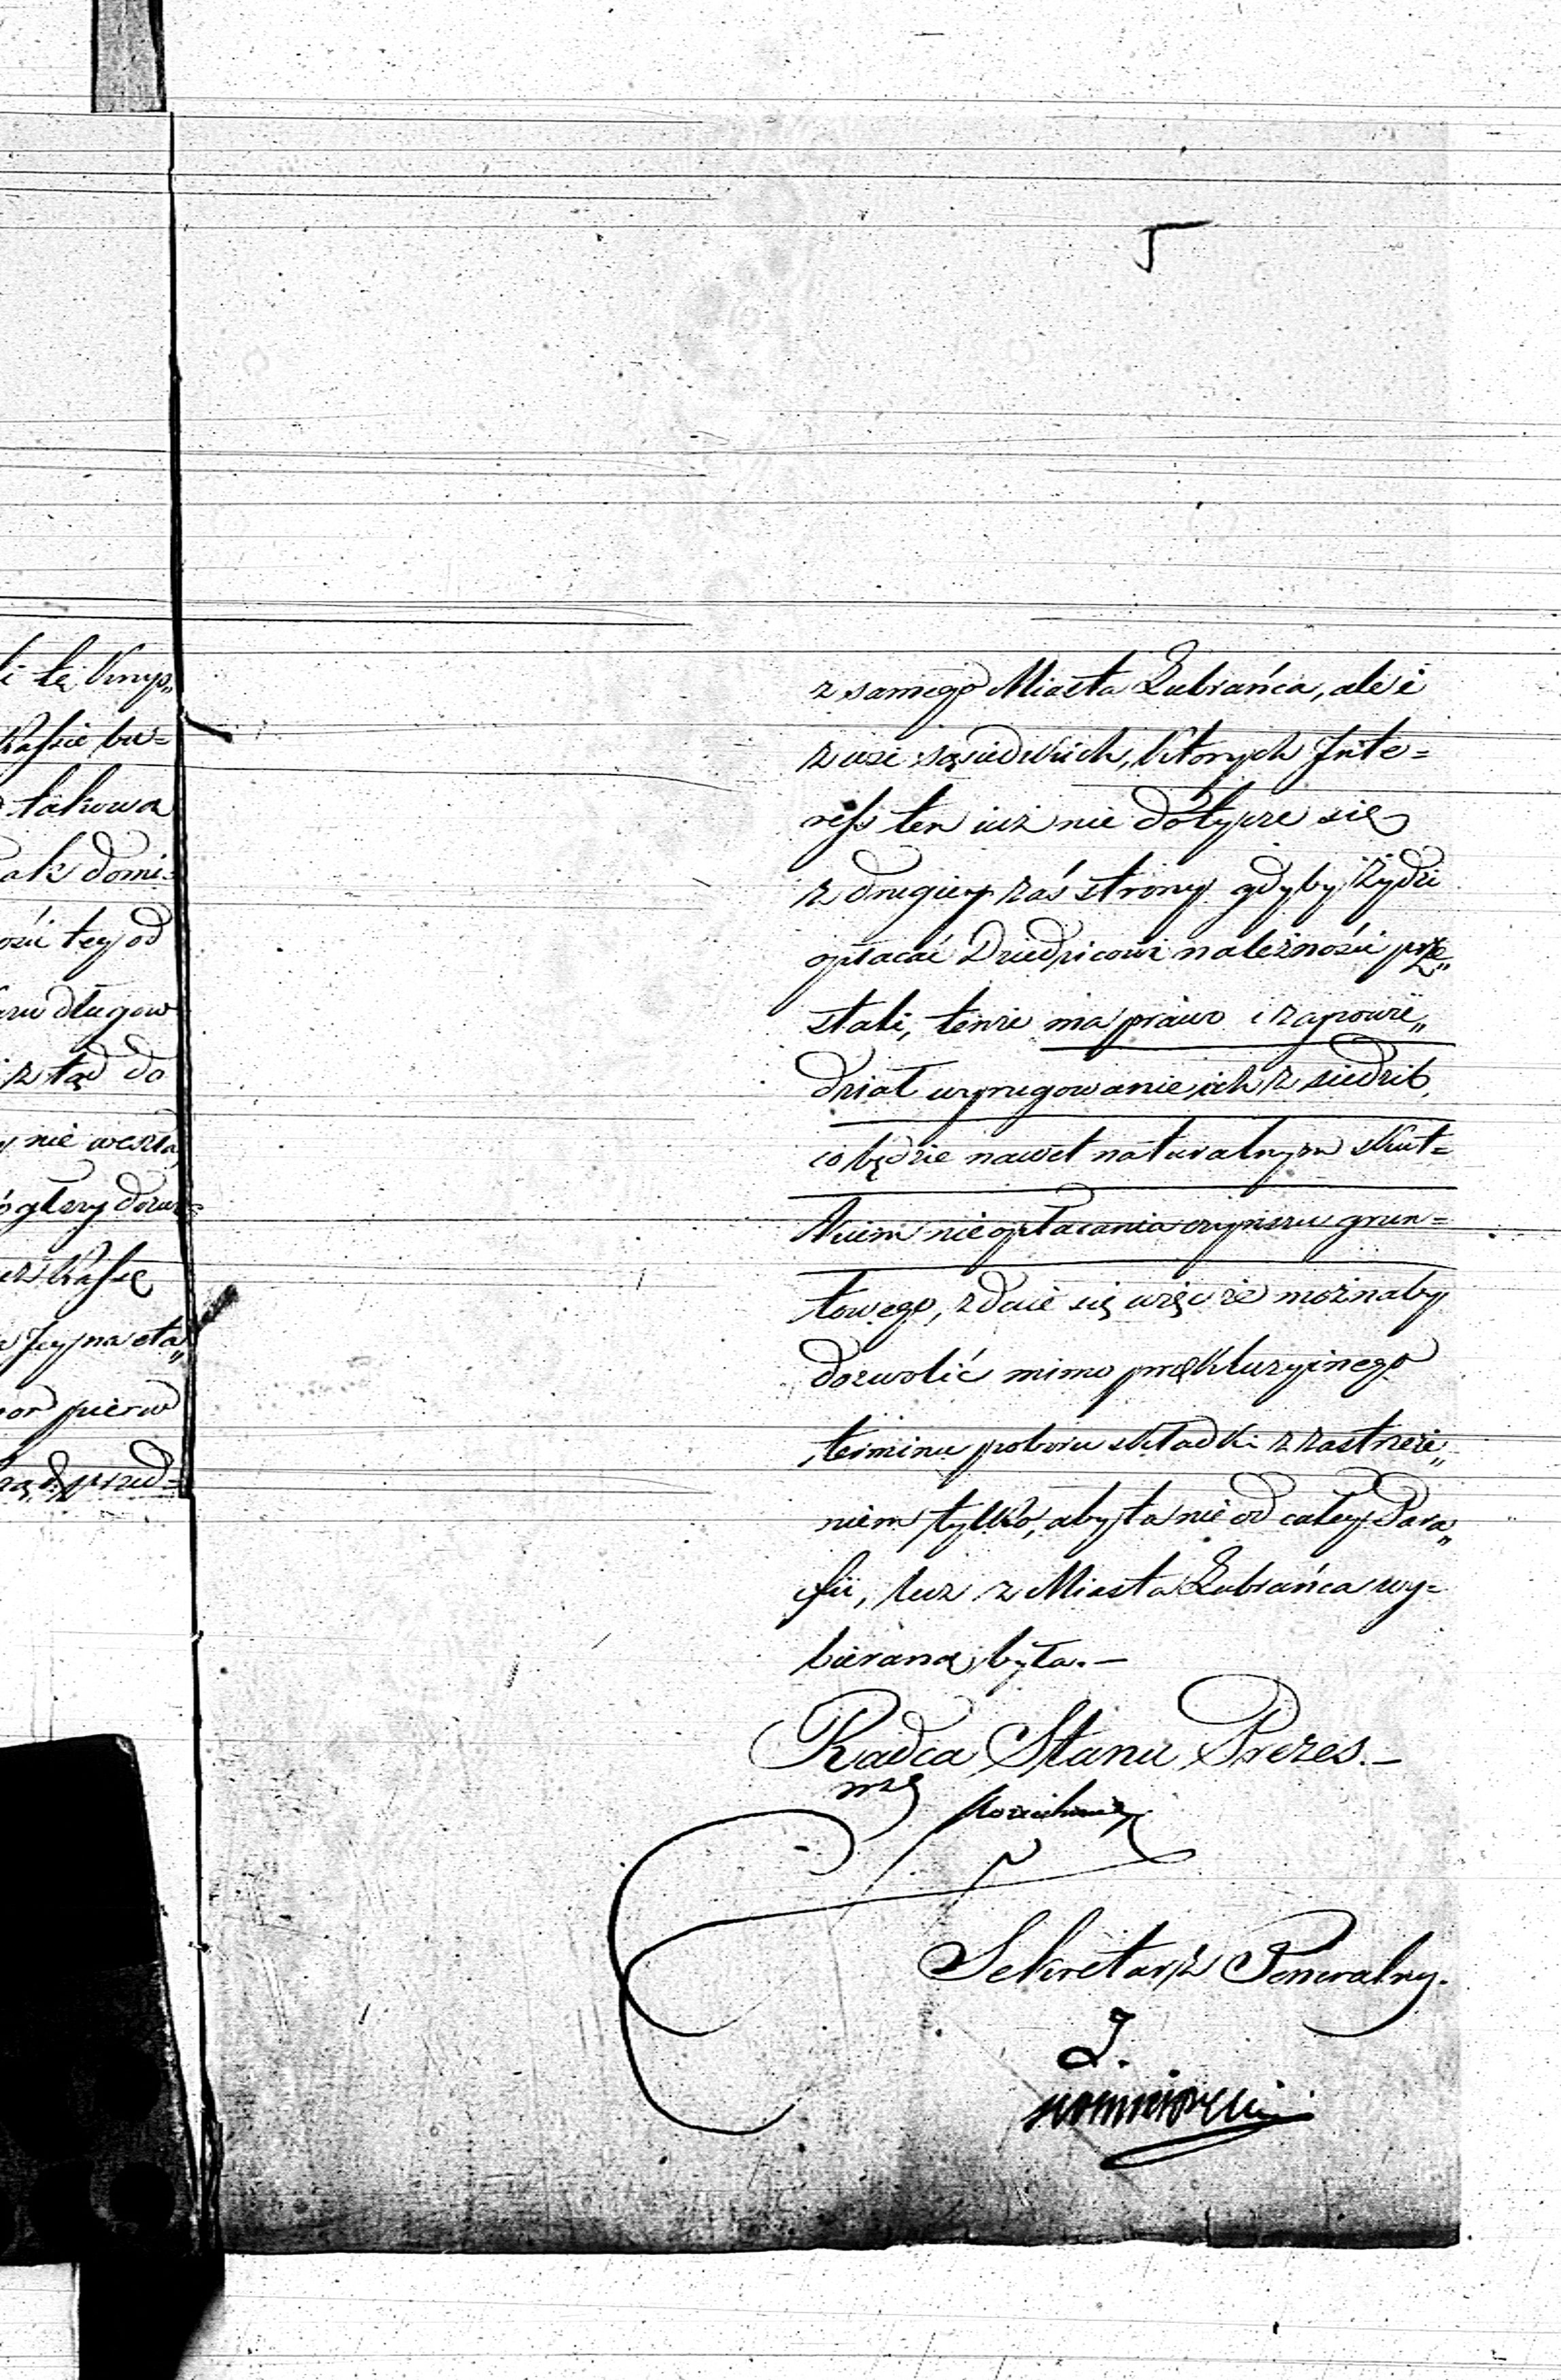 5
li tę Kmp„
Kassie bu=
takowa
ak domi=
ości tey od
aru długow
z tąd do
nie weszła
ogłszy dozw=
Kassę
Jey na sta„
pierw
rząd. przed=
z samego Miasta Lubrańca, ale i
z wsi sąsiedzkich, których Inte=
ress ten iuż nie dotycze się
z drugiey zaś strony gdyby Żydzi
opłacać Dziedzicowi należności prze„
stali, tenże ma prawo i zapowie„
dział wyrugowanie ich z siedzib,
co będzie nawet naturalnym skut=
kiem nieopłacania czynszu grun=
towego, zdaie się więc że możnaby
dozwolić mimo prekluzyinego
terminu poboru składki z zastrzeże„
niem tylko, aby ta nie od całey Para„
fii, lecz z Miasta Lubrańca wy=
bierana była. —
Radca Stanu Prezes. —
Sekretarz Generalny.